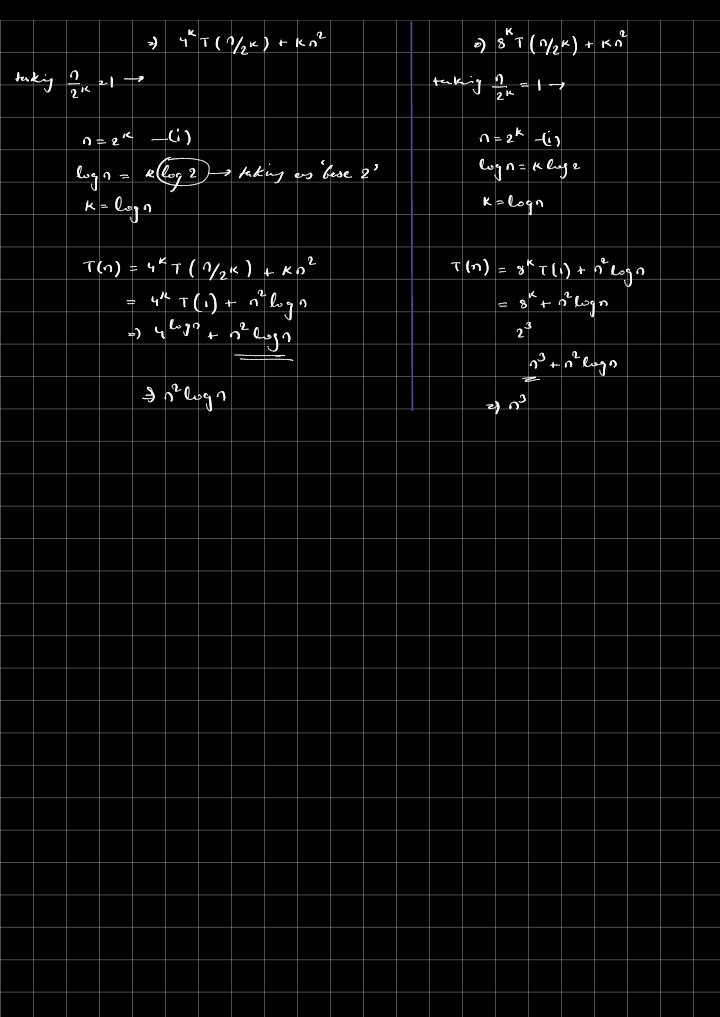 ⇒ 4^k T(n/2^k) + kn²
taking n/2^k = 1 →
n = 2^k —(i)
log n = k log 2 → taking as 'base 2'
k = log n
T(n) = 4^k T(n/2^k) + kn²
= 4^k T(1) + n² log n
⇒ 4^log n + n² log n
⇒ n² log n
⇒ 8^k T(n/2^k) + kn²
taking n/2^k = 1 →
n = 2^k —(i)
log n = k log 2
k = log n
T(n) = 8^k T(1) + n² log n
= 8^k + n² log n
2³
n³ + n² log n
⇒ n³